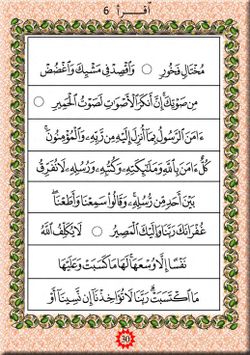 اقرأ 6
مُخْتَالٍ فَخُورٍ ○ وَٱقْصِدْ فِى مَشْيِكَ وَٱغْضُضْ
مِن صَوْتِكَ إِنَّ أَنكَرَ ٱلْأَصْوَٰتِ لَصَوْتُ ٱلْحَمِيرِ ○
ءَامَنَ ٱلرَّسُولُ بِمَآ أُنزِلَ إِلَيْهِ مِن رَّبِّهِۦ وَٱلْمُؤْمِنُونَ ۚ
كُلٌّ ءَامَنَ بِٱللَّهِ وَمَلَٰٓئِكَتِهِۦ وَكُتُبِهِۦ وَرُسُلِهِۦ لَا نُفَرِّقُ
بَيْنَ أَحَدٍ مِّن رُّسُلِهِۦ ۚ وَقَالُوا۟ سَمِعْنَا وَأَطَعْنَا ۖ
غُفْرَانَكَ رَبَّنَا وَإِلَيْكَ ٱلْمَصِيرُ ○ لَا يُكَلِّفُ ٱللَّهُ
نَفْسًا إِلَّا وُسْعَهَا ۚ لَهَا مَا كَسَبَتْ وَعَلَيْهَا
مَا ٱكْتَسَبَتْ ۗ رَبَّنَا لَا تُؤَاخِذْنَآ إِن نَّسِينَآ أَوْ
30